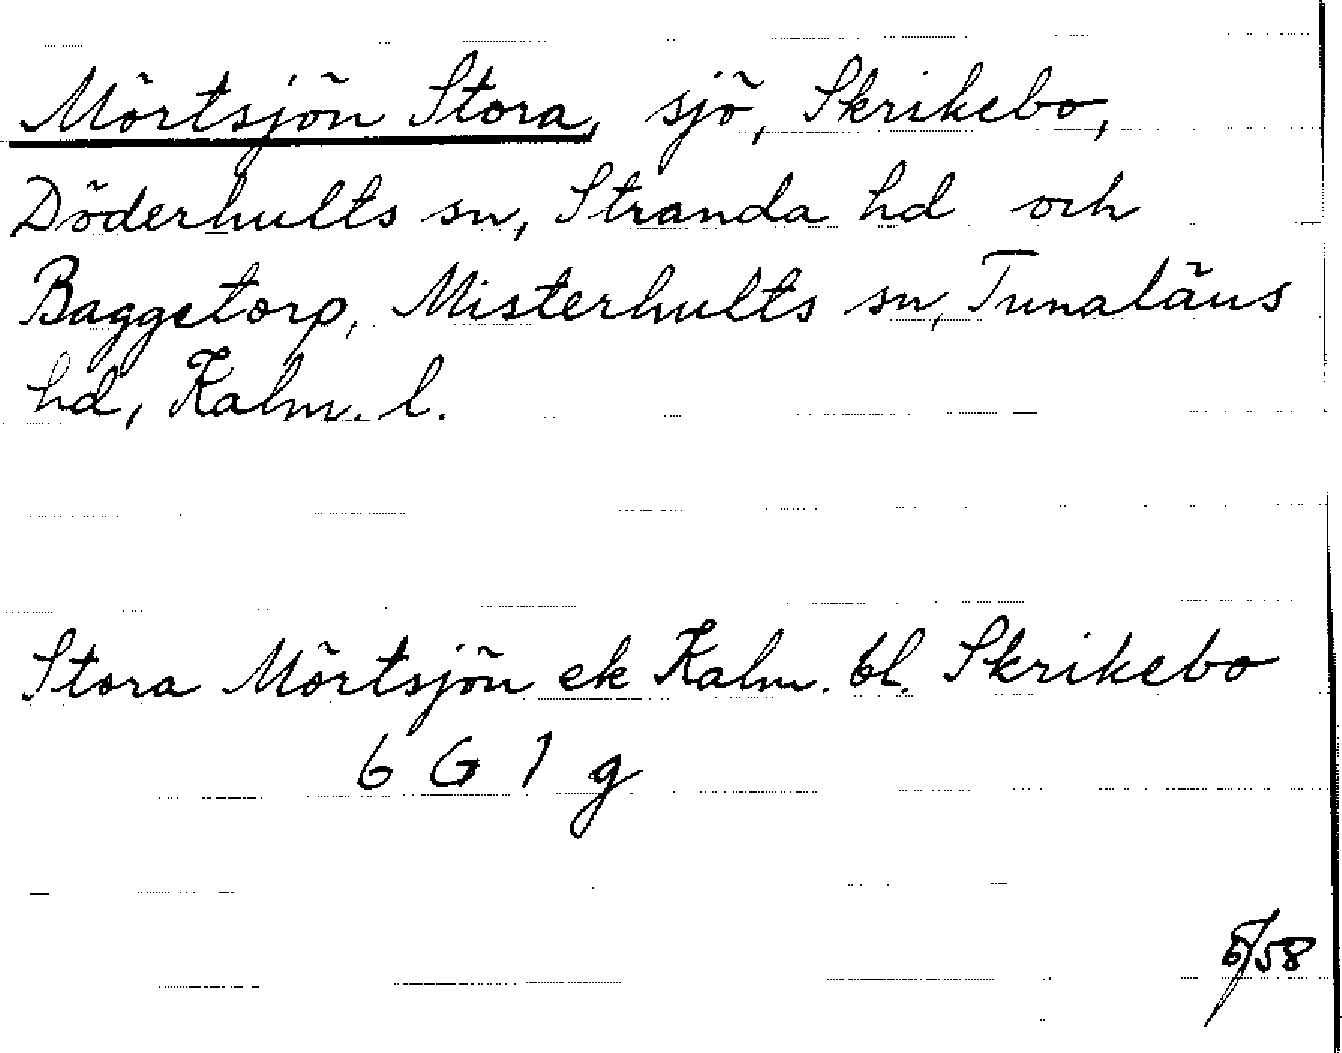 Mörtsjön Stora, sjö, Skrikebo,
Döderhults sn, Stranda hd och
Baggetorp, Misterhults sn, Tunaläns
hd, Kalm. l.
Stora Mörtsjön ek Kalm. bl. Skrikebo
6 G 1 g
6/58